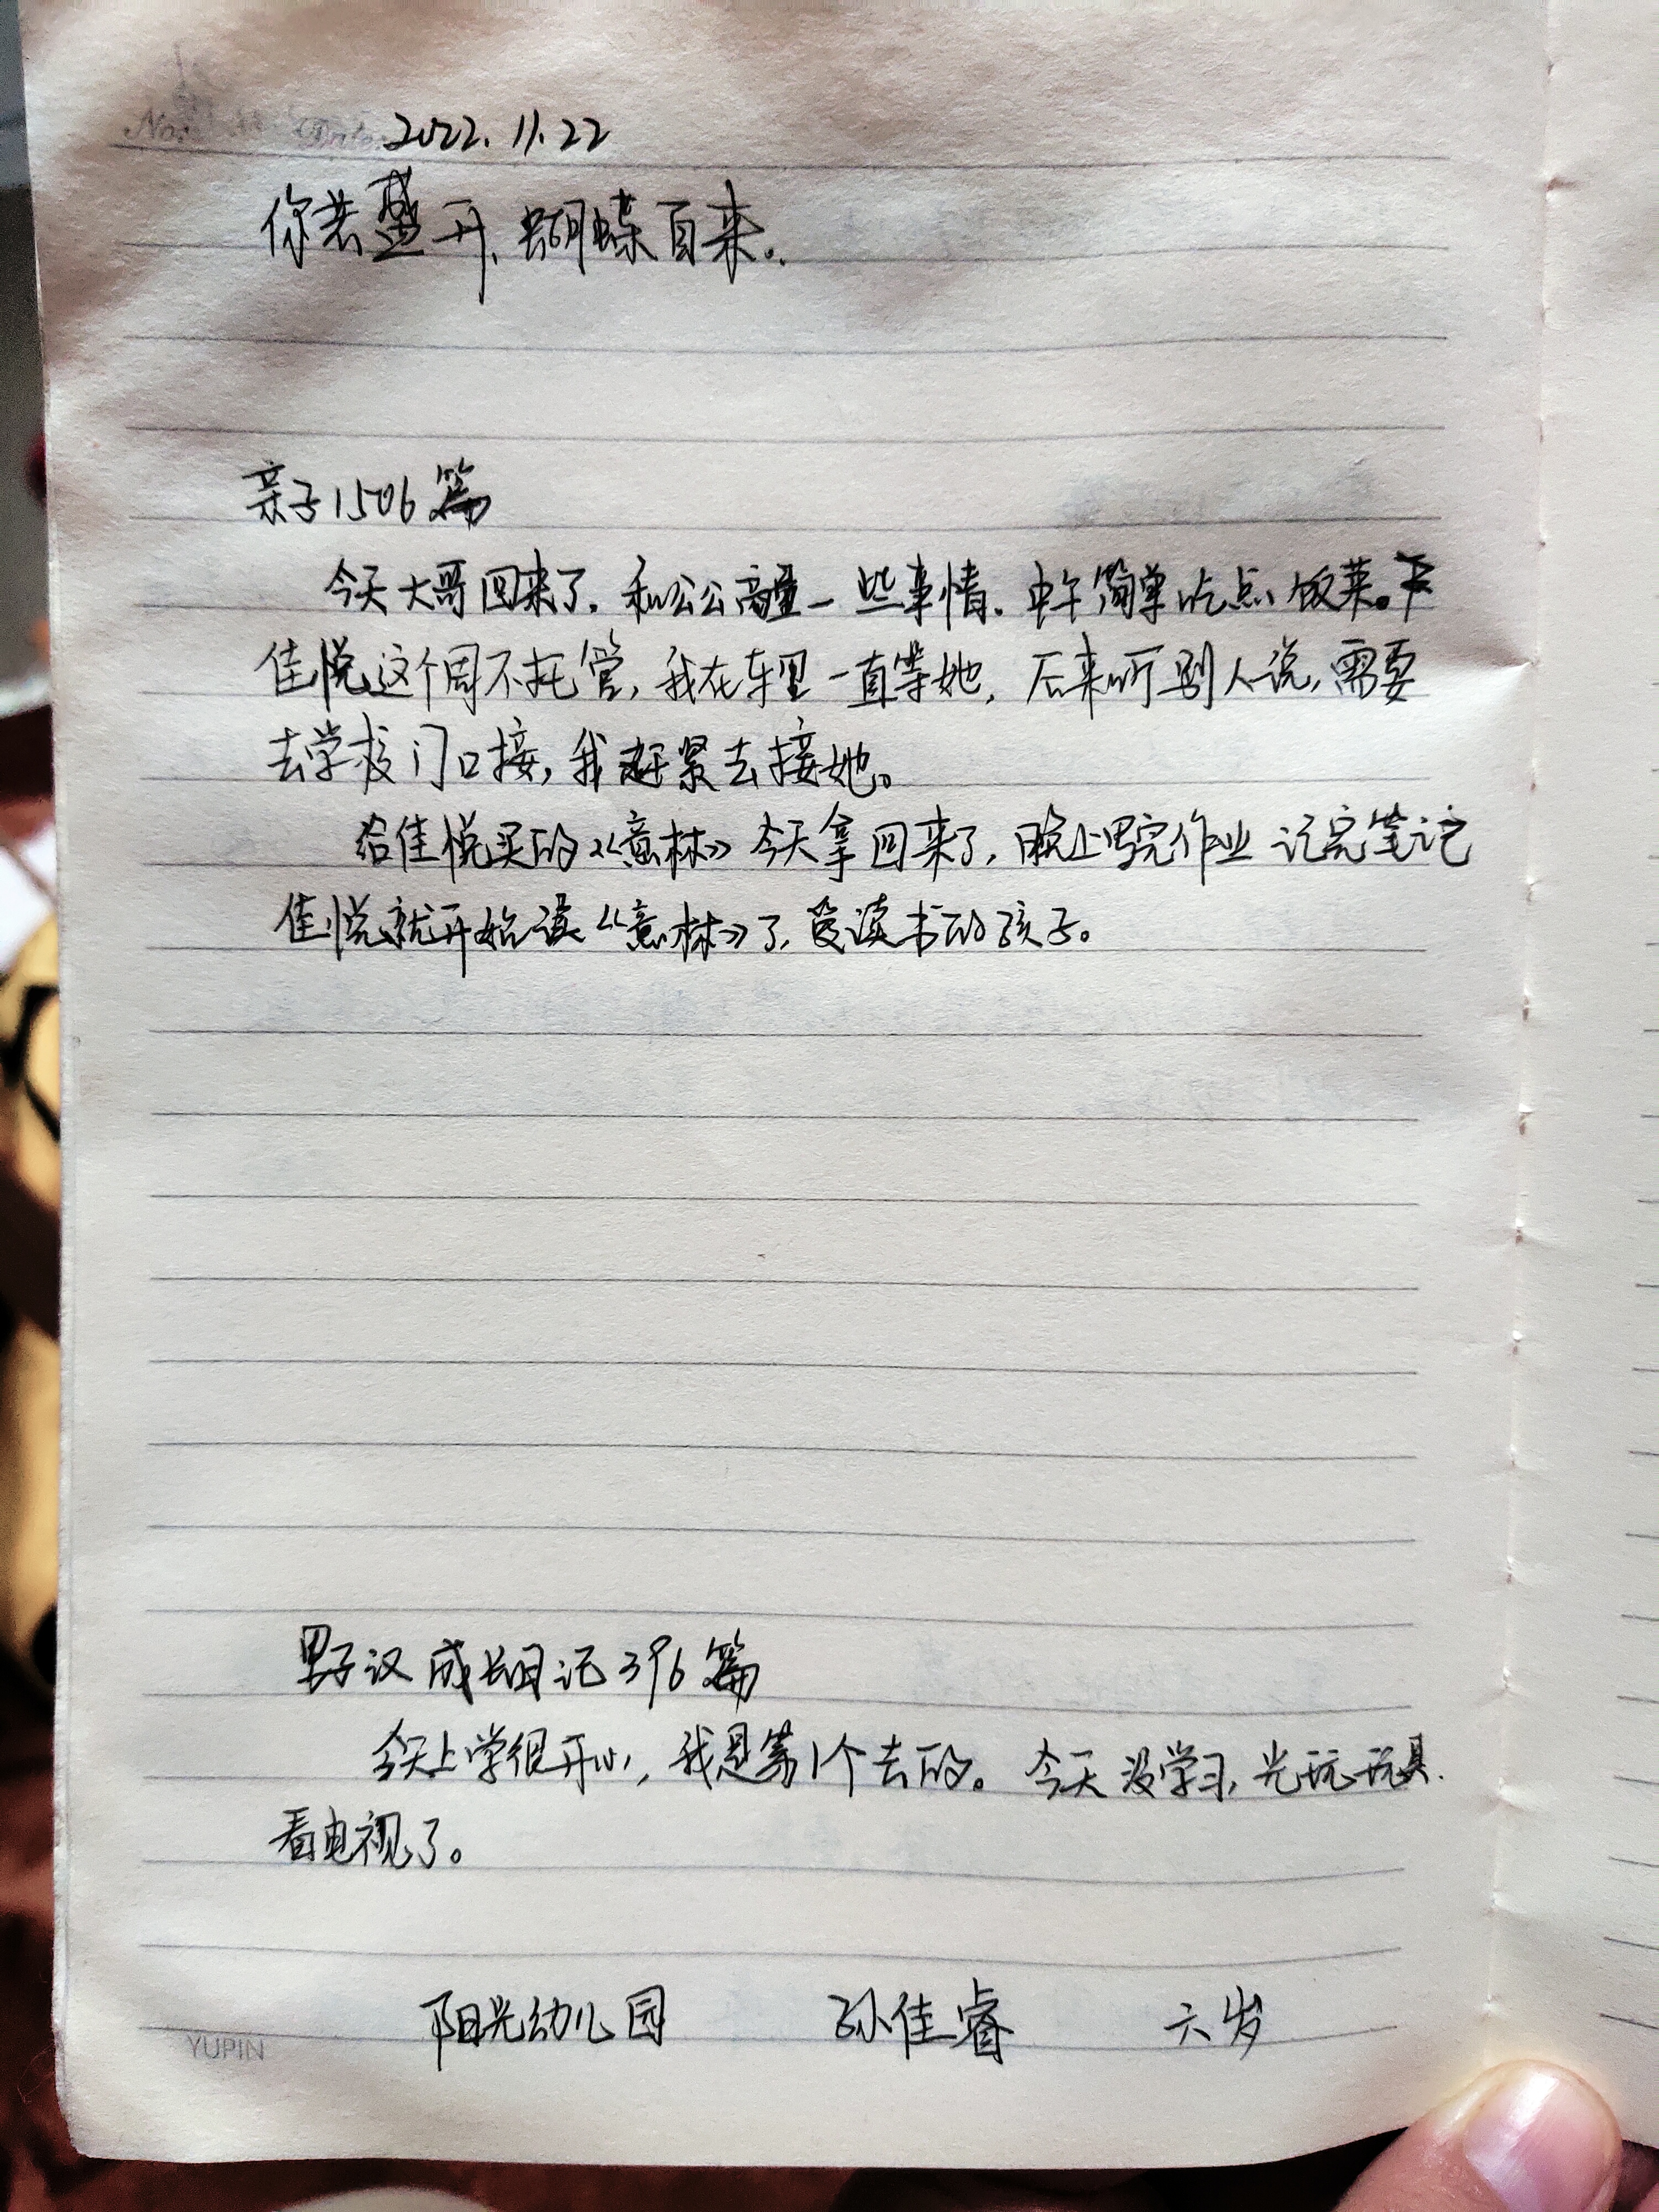 No. Date 2022.11.22
你若盛开,蝴蝶自来。
亲子1506篇
今天大哥回来了,和公公商量一些事情,中午简单吃点饭菜。
佳悦这个周不托管,我在车里一直等她,后来听别人说,需要
去学校门口接,我赶紧去接她。
给佳悦买的《意林》今天拿回来了,晚上写完作业记完笔记
佳悦就开始读《意林》了,爱读书的孩子。
男子汉成长日记396篇
今天上学很开心,我是第1个去的。今天没学习,光玩玩具.
看电视了。
阳光幼儿园 孙佳睿 六岁
YUPIN